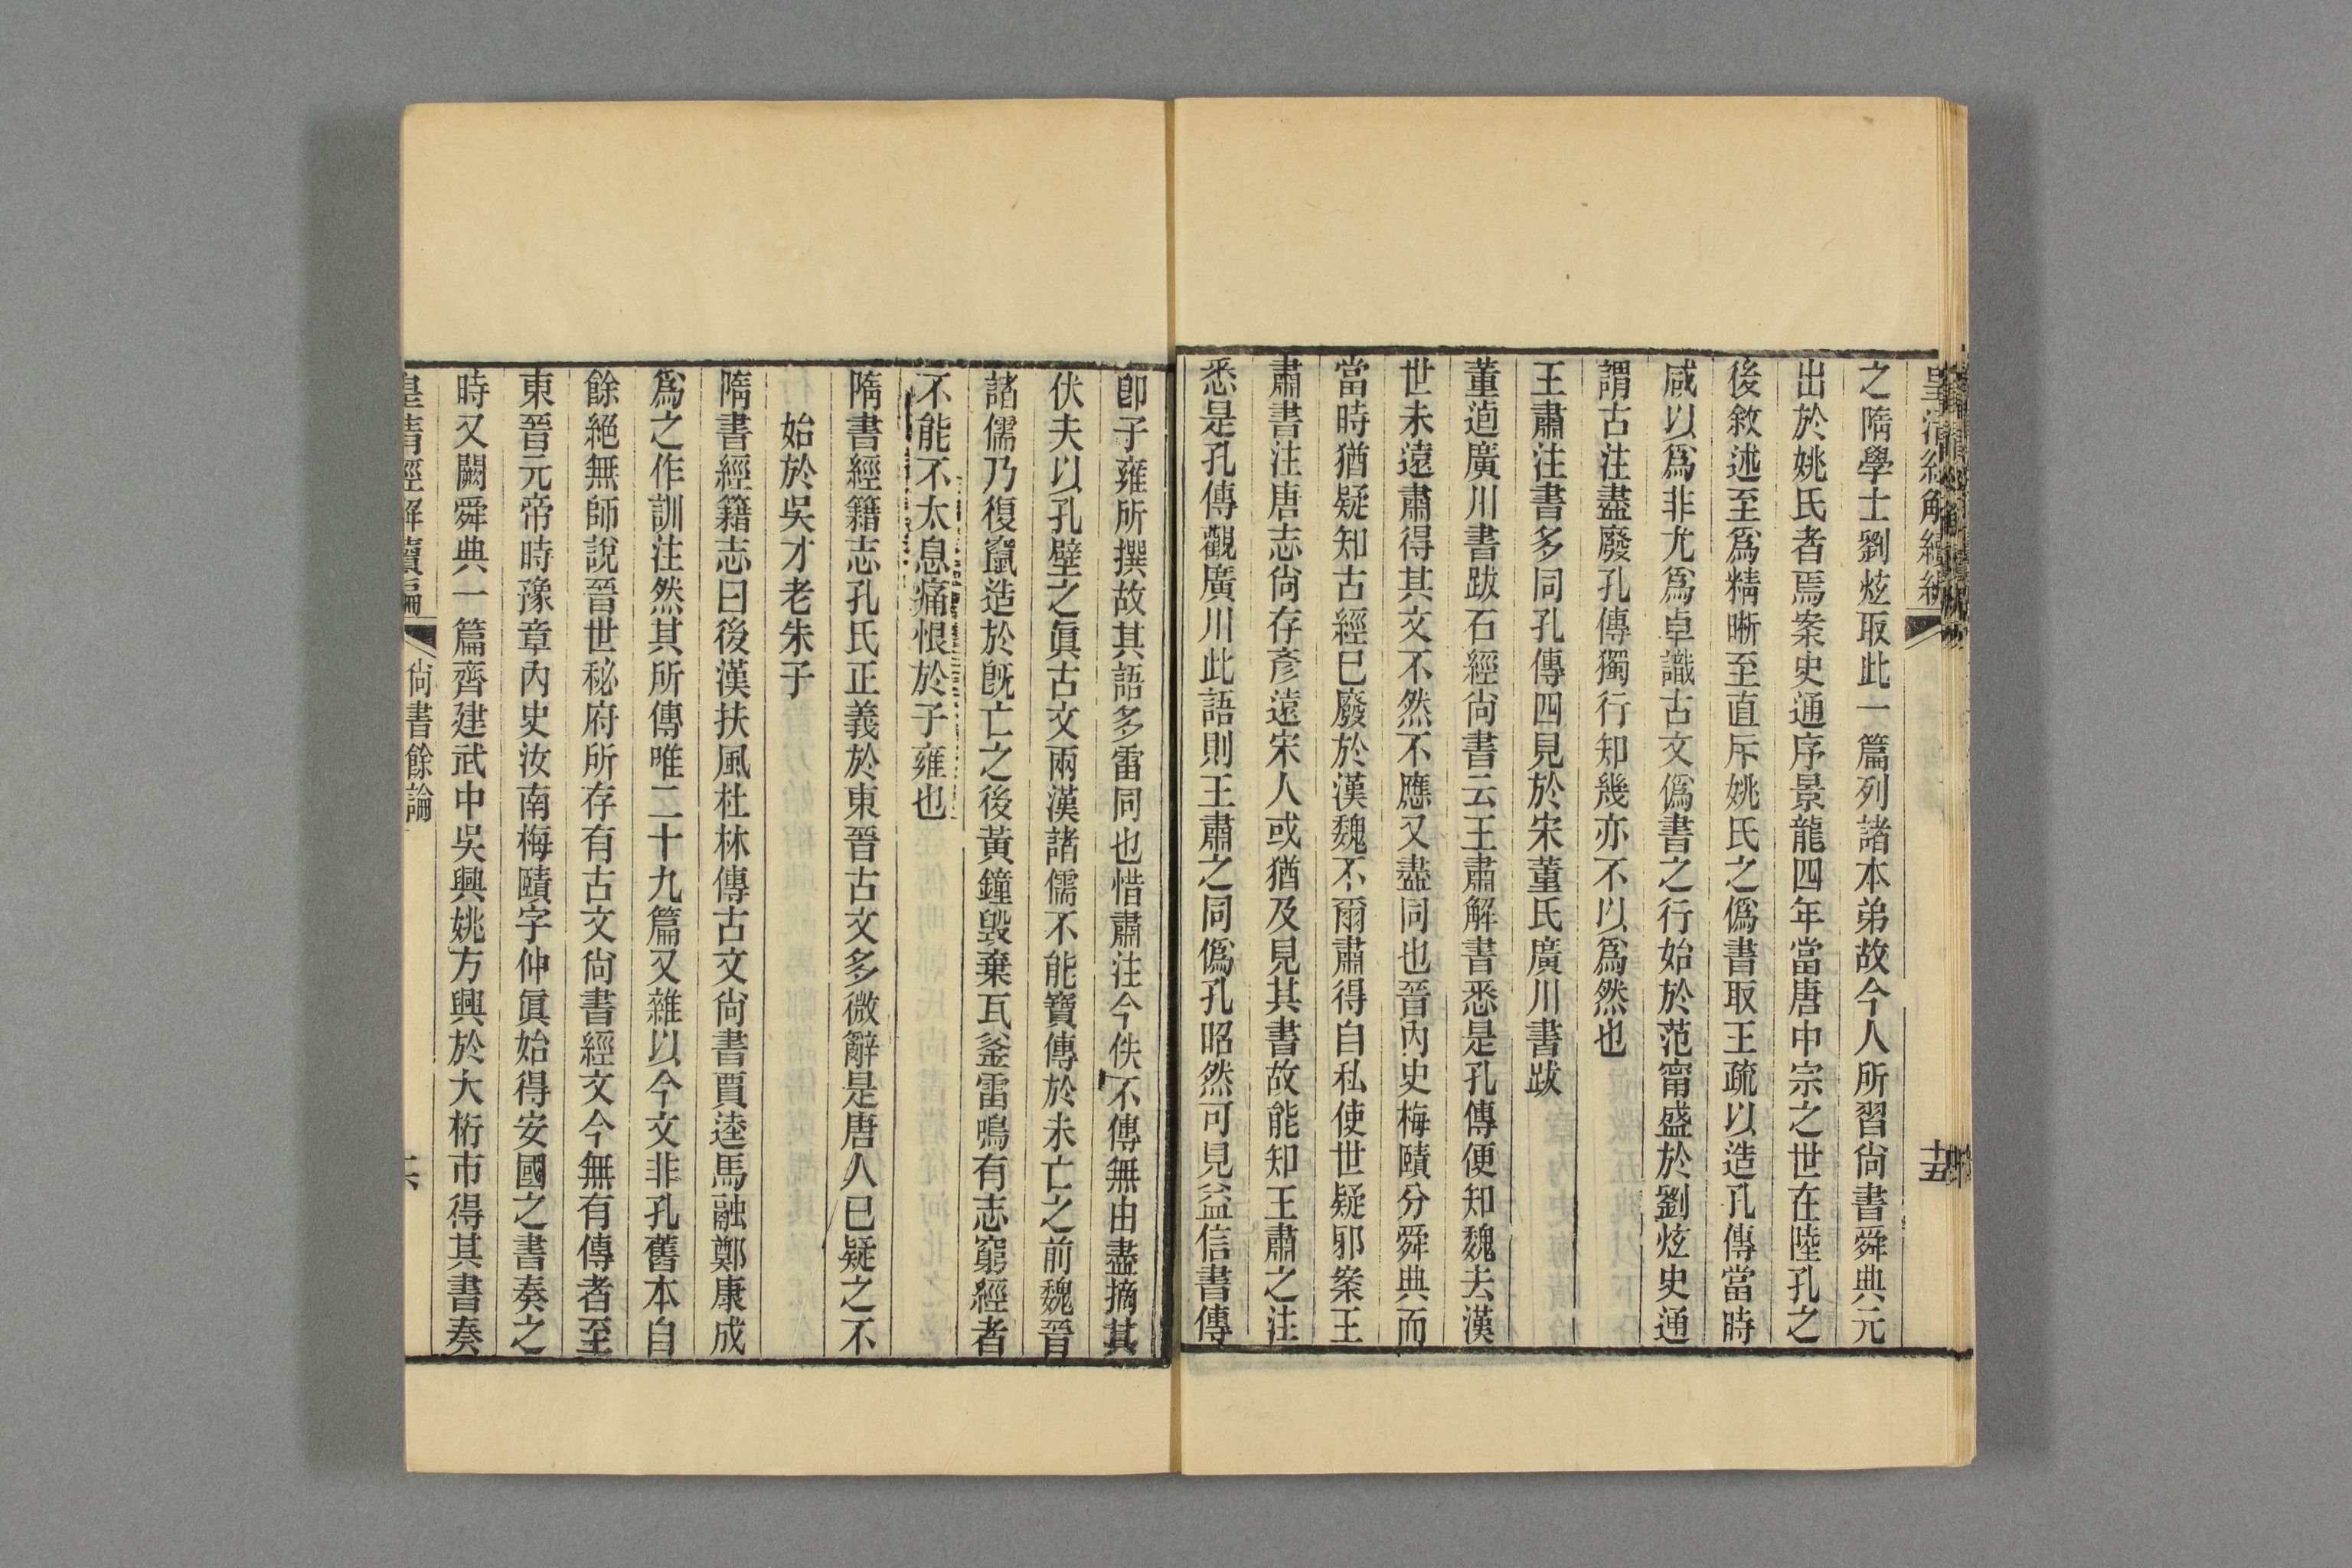 皇清經解續編
十五
之隋學士劉炫取此一篇列諸本弟故今人所習尙書舜典元
出於姚氏者焉案史通序景龍四年當唐中宗之世在陸孔之
後敘述至爲精晰至直斥姚氏之僞書取王疏以造孔傳當時
咸以爲非尤爲卓識古文僞書之行始於范甯盛於劉炫史通
謂古注盡廢孔傳獨行知幾亦不以爲然也
王肅注書多同孔傳四見於宋董氏廣川書跋
董逌廣川書跋石經尙書云王肅解書悉是孔傳便知魏去漢
世未遠肅得其文不然不應又盡同也晉內史梅賾分舜典而
當時猶疑知古經已廢於漢魏不爾肅得自私使世疑邪案王
肅書注唐志尙存彥遠宋人或猶及見其書故能知王肅之注
悉是孔傳觀廣川此語則王肅之同僞孔昭然可見益信書傳
卽子雍所撰故其語多雷同也惜肅注今佚不傳無由盡摘其
伏夫以孔壁之眞古文兩漢諸儒不能寶傳於未亡之前魏晉
諸儒乃復竄造於旣亡之後黃鐘毀棄瓦釜雷鳴有志窮經者
不能不太息痛恨於子雍也
隋書經籍志孔氏正義於東晉古文多微辭是唐人已疑之不
始於吳才老朱子
隋書經籍志曰後漢扶風杜林傳古文尙書賈逵馬融鄭康成
爲之作訓注然其所傳唯二十九篇又雜以今文非孔舊本自
餘絕無師說晉世秘府所存有古文尙書經文今無有傳者至
東晉元帝時豫章內史汝南梅賾字仲眞始得安國之書奏之
時又闕舜典一篇齊建武中吳興姚方興於大桁市得其書奏
皇清經解續編
尙書餘論